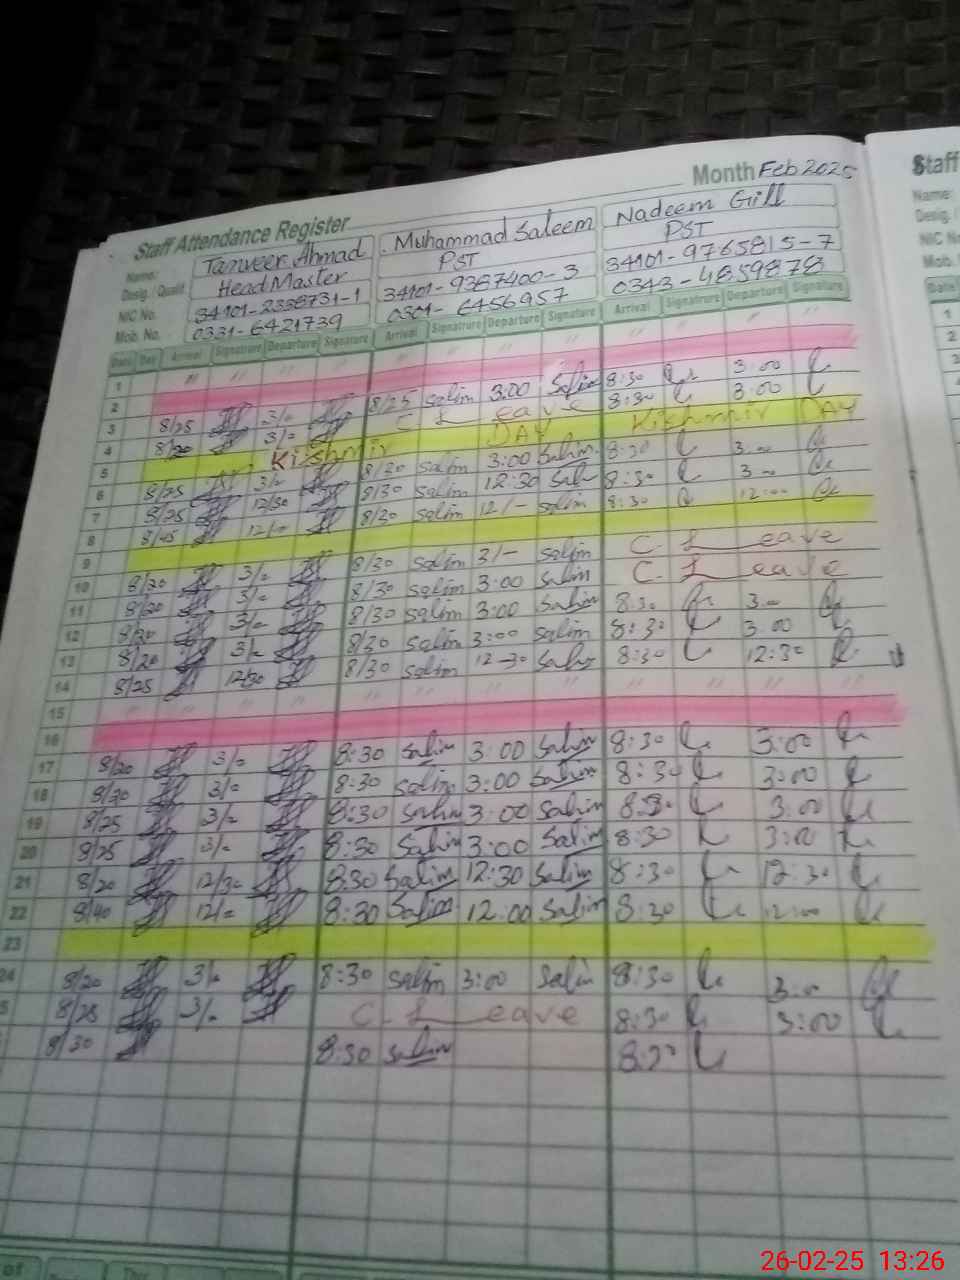 Staff Attendance Register Month Feb 2025 Staff
Name: Tanveer Ahmad Muhammad Saleem Nadeem Gill Name:
Desig. / Qualif. Head Master PST PST Desig. /
NIC No. 34101-2338731-1 34101-9387400-3 34101-9765815-7 NIC No
Mob. No. 0331-6421739 0301-6456957 0343-4859878 Mob.
Date Day Arrival Signature Departure Signature Arrival Signatrure Departure Signature Arrival Signatrure Departure Signature Date
1 " " " " " " " " " " " 1
2 2
3 8/25 3/= 8/25 Salim 3:00 Salim 8:30 3:00 3
4 8/20 3/= C. Leave 8:30 3:00
5 Kishmir DAY Kishmir DAY
6 8/25 3/= 8/20 Salim 3:00 Salim 8:30 3:00
7 8/25 12/30 8/30 Salim 12:30 Sal 8:30 3:00
8 8/45 12/= 8/30 Salim 12/- Salim 8:30 12:00
9
10 8/20 3/= 8/30 Salim 3/- Salim C. Leave
11 8/20 3/= 8/30 Salim 3:00 Salim C. Leave
12 8/20 3/= 8/30 Salim 3:00 Salim 8:30 3:00
13 8/20 3/= 8/30 Salim 3:00 Salim 8:30 3:00
14 8/25 12/30 8/30 Salim 12-30 Salim 8:30 12:30
15 " " " " " " " " " " " "
16
17 8/20 3/= 8:30 Salim 3:00 Salim 8:30 3:00
18 8/20 3/= 8:30 Salim 3:00 Salim 8:30 3:00
19 8/25 3/= 8:30 Salim 3:00 Salim 8:30 3:00
20 8/25 3/= 8:30 Salim 3:00 Salim 8:30 3:00
21 8/20 12/30 8:30 Salim 12:30 Salim 8:30 12:30
22 8/40 12/= 8:30 Salim 12:00 Salim 8:30 12:00
23
24 8/20 3/= 8:30 Salim 3:00 Salim 8:30 3:00
5 8/25 3/= C. Leave 8:30 3:00
8/30 8:30 Salim
of
26-02-25 13:26